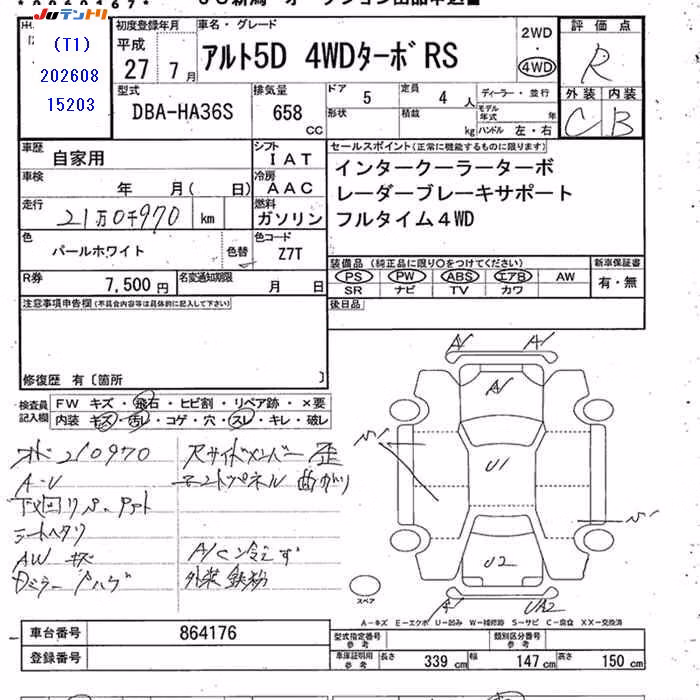 Juテントリ
(T1)
202608
15203
初度登録年月
平成
27 7月
車名・グレード
アルト5D 4WDターボ RS
2WD
4WD
評価点
R
外装 内装
C B
型式
DBA-HA36S
排気量
658 CC
ドア
5
定員
4 人
形状
積載
kg
ディーラー・並行
モデル年式 年
ハンドル 左・右
車歴
自家用
シフト
IAT
車検
年 月( 日)
冷房
AAC
走行
21万0千970 km
燃料
ガソリン
色
パールホワイト
色替
色コード
Z7T
R券
7,500円
名変通知期限
月 日
セールスポイント(正常に機能するものに限ります)
インタークーラーターボ
レーダーブレーキサポート
フルタイム4WD
装備品(純正品に限り○をつけてください)
PS PW ABS エアB AW
SR ナビ TV カワ
新車保証書
有・無
後日品
注意事項申告欄(不具合内容等は具体的に記入して下さい)
修復歴 有〔箇所 〕
検査員
記入欄
FW キズ・飛石・ヒビ割・リペア跡・×要
内装 キズ・汚レ・コゲ・穴・スレ・キレ・破レ
210970
A-U
シートヘタリ
AW キズ
Rサイドメンバー歪
エンドパネル曲がり
A/C冷えず
外装鉄粉
A1
A1
A1
U1
U2
UA2
スペア
A-キズ E-エクボ U-凹み W-補修跡 S-サビ C-腐食 XX-交換済
車台番号
864176
登録番号
型式指定番号
参考
類別区分番号
参考
車庫証明用
参考
長さ 339 cm
幅 147 cm
高さ 150 cm